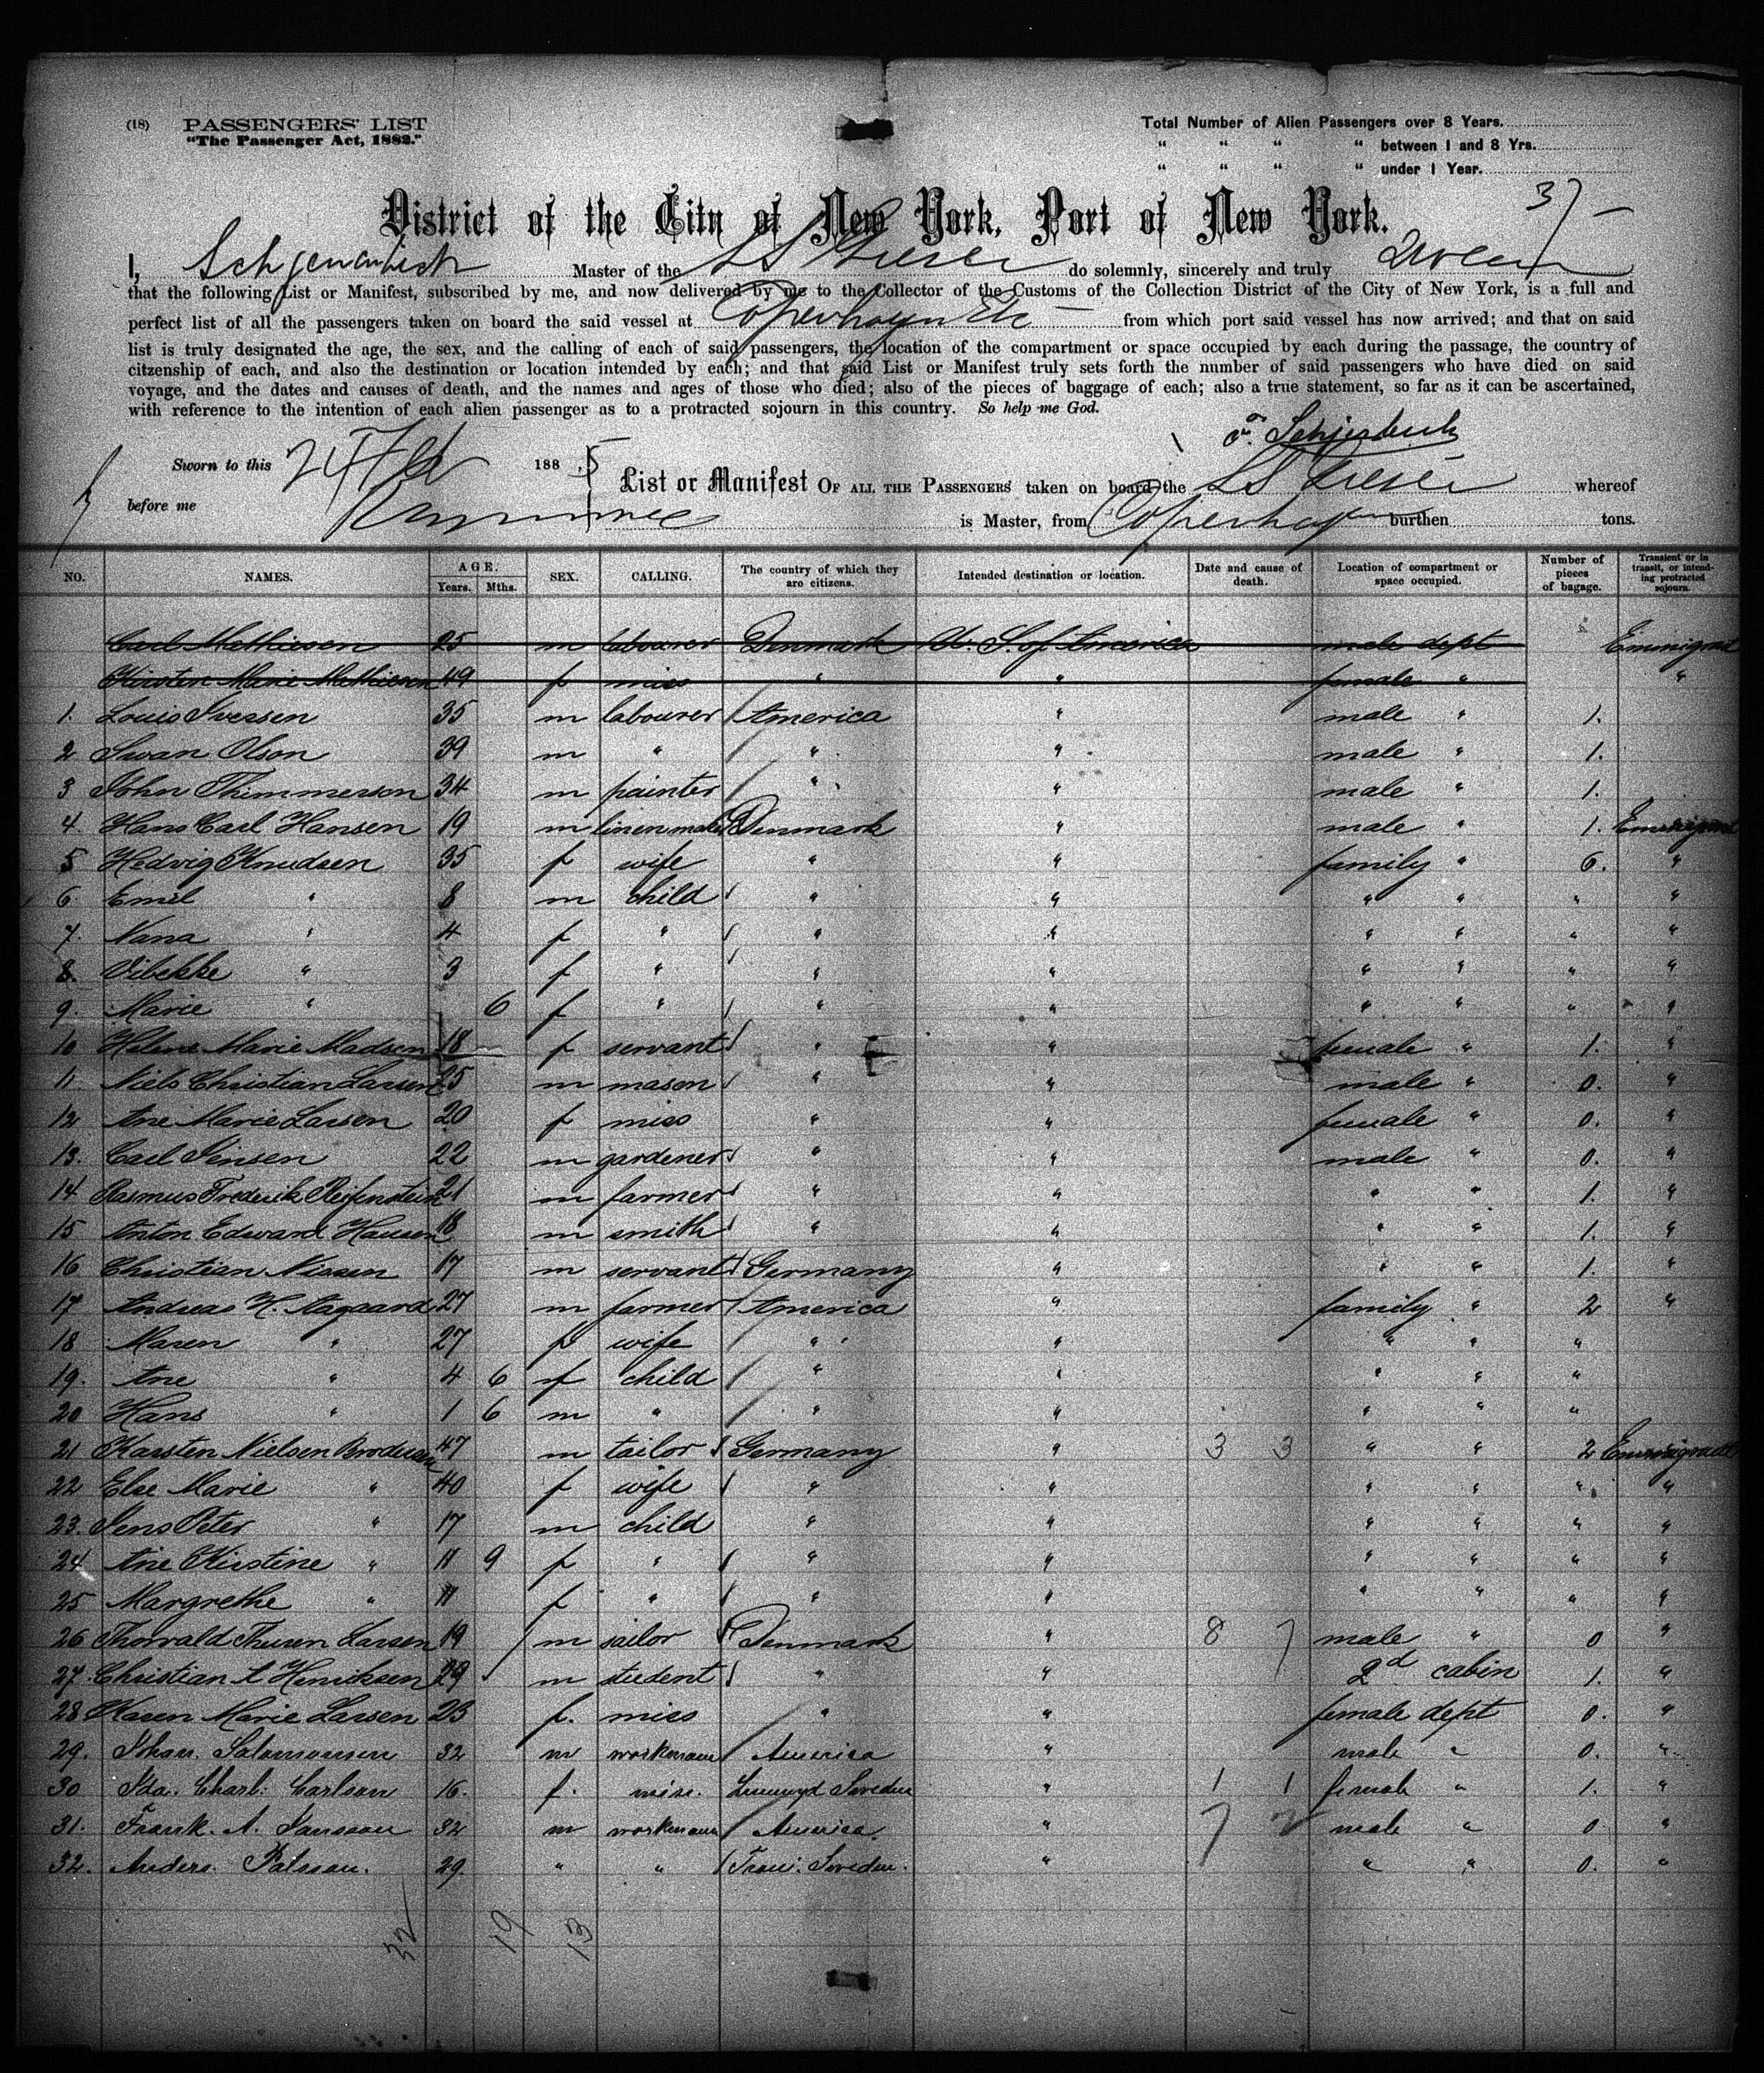 (18) PASSENGERS' LIST
"The Passenger Act, 1882."
Total Number of Alien Passengers over 8 Years.
" " " " between 1 and 8 Yrs.
" " " " under 1 Year.
37 —
District of the City of New York, Port of New York.
I, Master of the SS Geiser do solemnly, sincerely and truly swear
that the following List or Manifest, subscribed by me, and now delivered by me to the Collector of the Customs of the Collection District of the City of New York, is a full and
perfect list of all the passengers taken on board the said vessel at Copenhagen Etc — from which port said vessel has now arrived; and that on said
list is truly designated the age, the sex, and the calling of each of said passengers, the location of the compartment or space occupied by each during the passage, the country of
citzenship of each, and also the destination or location intended by each; and that said List or Manifest truly sets forth the number of said passengers who have died on said
voyage, and the dates and causes of death, and the names and ages of those who died; also of the pieces of baggage of each; also a true statement, so far as it can be ascertained,
with reference to the intention of each alien passenger as to a protracted sojourn in this country. So help me God.
Sworn to this 24 Feb 188 5
before me
List or Manifest OF ALL THE PASSENGERS taken on board the SS Geiser whereof
is Master, from Copenhagen burthen tons.
NO. NAMES. AGE. Years. Mths. SEX. CALLING. The country of which they are citizens. Intended destination or location. Date and cause of death. Location of compartment or space occupied. Number of pieces of bagage. Transient or in transit, or intending protracted sojourn.
Carl Mathiesen 25 m labourer Denmark U. S. of America male dept Emmigrant
Kirsten Marie Mathiesen 49 f miss " " female " "
1. Louis Ivessen 35 m labourer America " male " 1.
2 Swan Olson 39 m " " " male " 1.
3 John Thimmerson 34 m painter " " male " 1.
4. Hans Carl Hansen 19 m Denmark " male " 1. Emmigrant
5 Hedvig Knudsen 35 f wife " " family " 6. "
6. Emil " 8 m child " " " " " "
7. Nana " 4 f " " " " " " "
8. Vibekke " 3 f " " " " " " "
9. Marie " 6 f " " " " " " "
10 Helene Marie Madsen 18 f servant " " female " 1. "
11. Niels Christian Larsen 25 m mason " " male " 0. "
12 Ane Marie Larsen 20 f miss " " female " 0. "
13. Carl Jensen 22 m gardener " " male " 0. "
14 Rasmus Frederik Reifenstein 21 m farmer " " " " 1. "
15 Anton Edward Hansen 18 m smith " " " " 1. "
16 Christian Nissen 17 m servant Germany " " " 1. "
17 Andreas H. Aagaard 27 m farmer America " family " 2 "
18 Maren " 27 f wife " " " " "
19. Ane " 4 6 f child " " " " "
20 Hans " 1 6 m " " " " " "
21 Karsten Nielsen Brodersen 47 m tailor Germany " 3 3 " " 2 Emmigrant
22 Else Marie " 40 f wife " " " " " "
23. Jens Peter " 17 m child " " " " " "
24. Ane Kirstine " 11 9 f " " " " " " "
25 Margrethe " 11 f " " " " " " "
26 Thorvald Thuren Larsen 19 m sailor Denmark " 8 7 male " 0 "
27. Christian A Henriksen 29 m student " " 2d cabin 1. "
28 Karen Marie Larsen 23 f. miss " " female dept 0. "
29. Johan. Salomonsen 32 m workmann America " male " 0. "
30 Ida. Charl: Carlson 16. f. miss. Sweden " 1 1 female " 1. "
31. Frank. A. Jansson 32 m workmann America. " 7 2 male " 0 "
32. Anders. Palsson. 29 " " Sweden. " " " 0. "
32 19 13